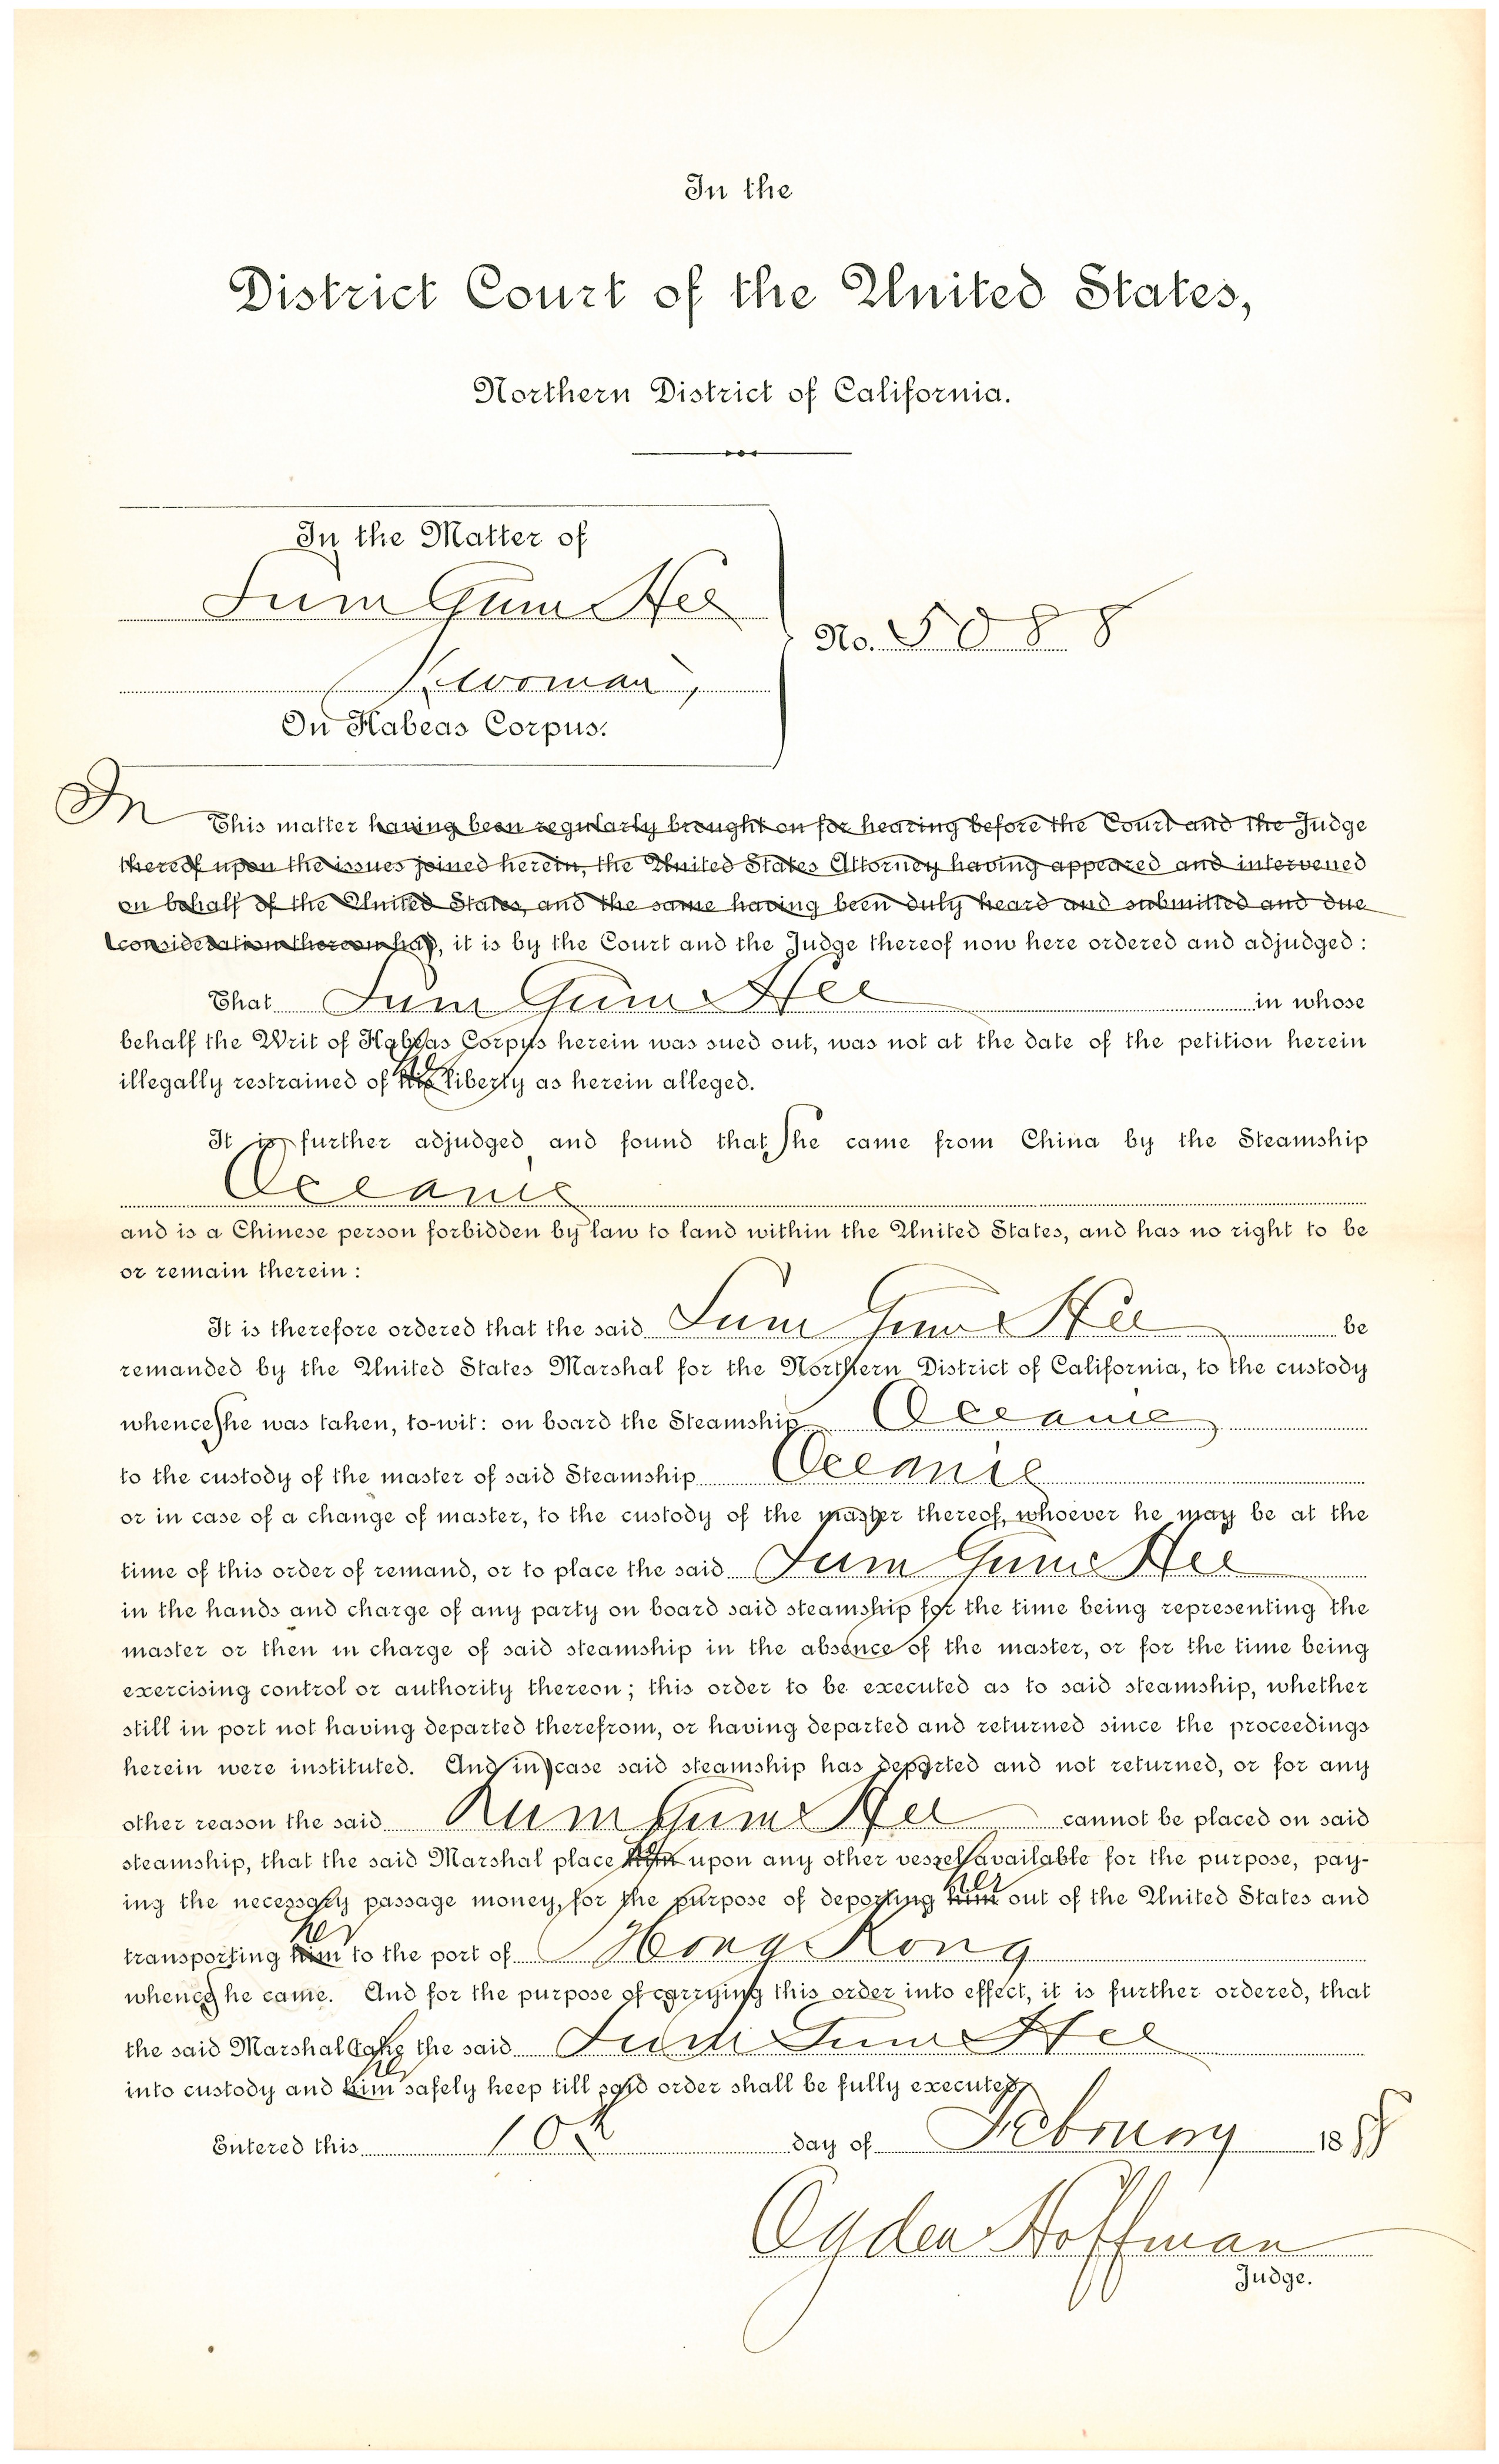 In the
District Court of the United States,
Northern District of California.
In the Matter of
Sum Gum Hee
(woman),
On Habeas Corpus.
No. 5088
In This matter having been regularly brought on for hearing before the Court and the Judge
thereof upon the issues joined herein, the United States Attorney having appeared and intervened
on behalf of the United States, and the same having been duly heard and submitted and due
consideration thereon had, it is by the Court and the Judge thereof now here ordered and adjudged:
That Sum Gum Hee in whose
behalf the Writ of Habeas Corpus herein was sued out, was not at the date of the petition herein
illegally restrained of his her liberty as herein alleged.
It is further adjudged and found that She came from China by the Steamship
Oceanic
and is a Chinese person forbidden by law to land within the United States, and has no right to be
or remain therein:
It is therefore ordered that the said Sum Gum Hee be
remanded by the United States Marshal for the Northern District of California, to the custody
whence She was taken, to-wit: on board the Steamship Oceanic
to the custody of the master of said Steamship Oceanic
or in case of a change of master, to the custody of the master thereof, whoever he may be at the
time of this order of remand, or to place the said Sum Gum Hee
in the hands and charge of any party on board said steamship for the time being representing the
master or then in charge of said steamship in the absence of the master, or for the time being
exercising control or authority thereon; this order to be executed as to said steamship, whether
still in port not having departed therefrom, or having departed and returned since the proceedings
herein were instituted. And in case said steamship has departed and not returned, or for any
other reason the said Sum Gum Hee cannot be placed on said
steamship, that the said Marshal place him her upon any other vessel available for the purpose, pay-
ing the necessary passage money, for the purpose of deporting him her out of the United States and
transporting him her to the port of Hong Kong
whence She came. And for the purpose of carrying this order into effect, it is further ordered, that
the said Marshal take the said Sum Gum Hee
into custody and him her safely keep till said order shall be fully executed.
Entered this 10th day of February 1888
Ogden Hoffman
Judge.